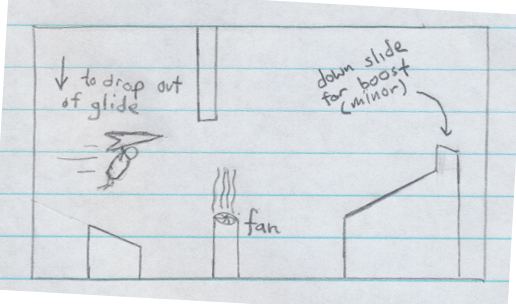 ↓ to drop out
of glide
down slide
for boost
(minor)
fan